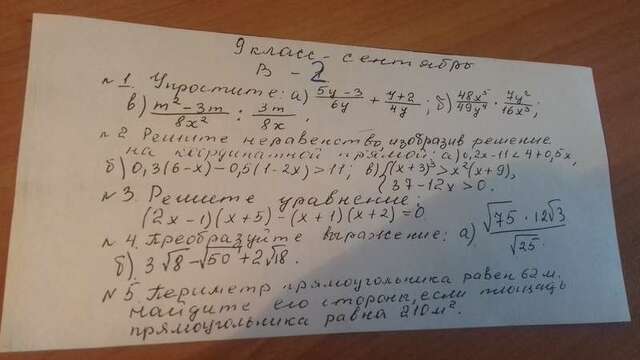 9 класс - сентябрь
В - 2
№1. Упростите: а) (5y-3)/(6y) + (y+2)/(4y); б) (48x⁵)/(49y⁴) · (7y²)/(16x³);
в) (m²-3m)/(8x²) : (3m)/(8x).
№2. Решите неравенство, изобразив решение
на координатной прямой: а) 0,2x-11<4+0,5x,
б) 0,3(6-x)-0,5(1-2x)>11; в) {(x+3)³>x²(x+9),
{37-12x>0.
№3. Решите уравнение:
(2x-1)(x+5)-(x+1)(x+2)=0
№4. Преобразуйте выражение: а) (√75 · 12√3)/√25.
б) 3√8-√50+2√18.
№5. Периметр прямоугольника равен 62м.
Найдите его стороны, если площадь
прямоугольника равна 210м².